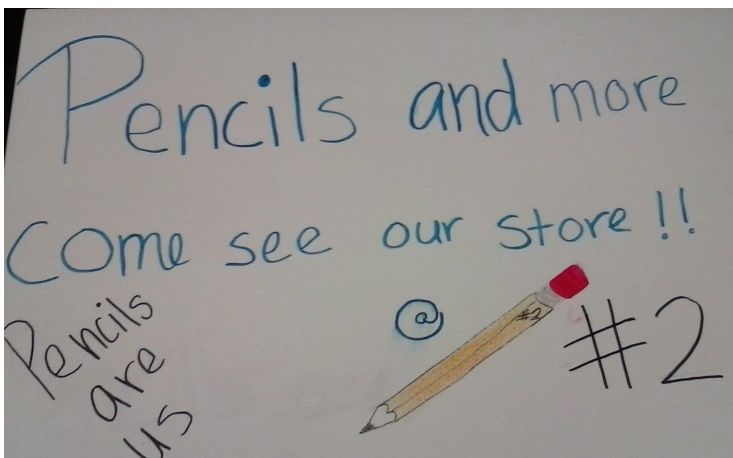 Pencils and more
Come see our store!!
@
#2
#2
Pencils
are
us